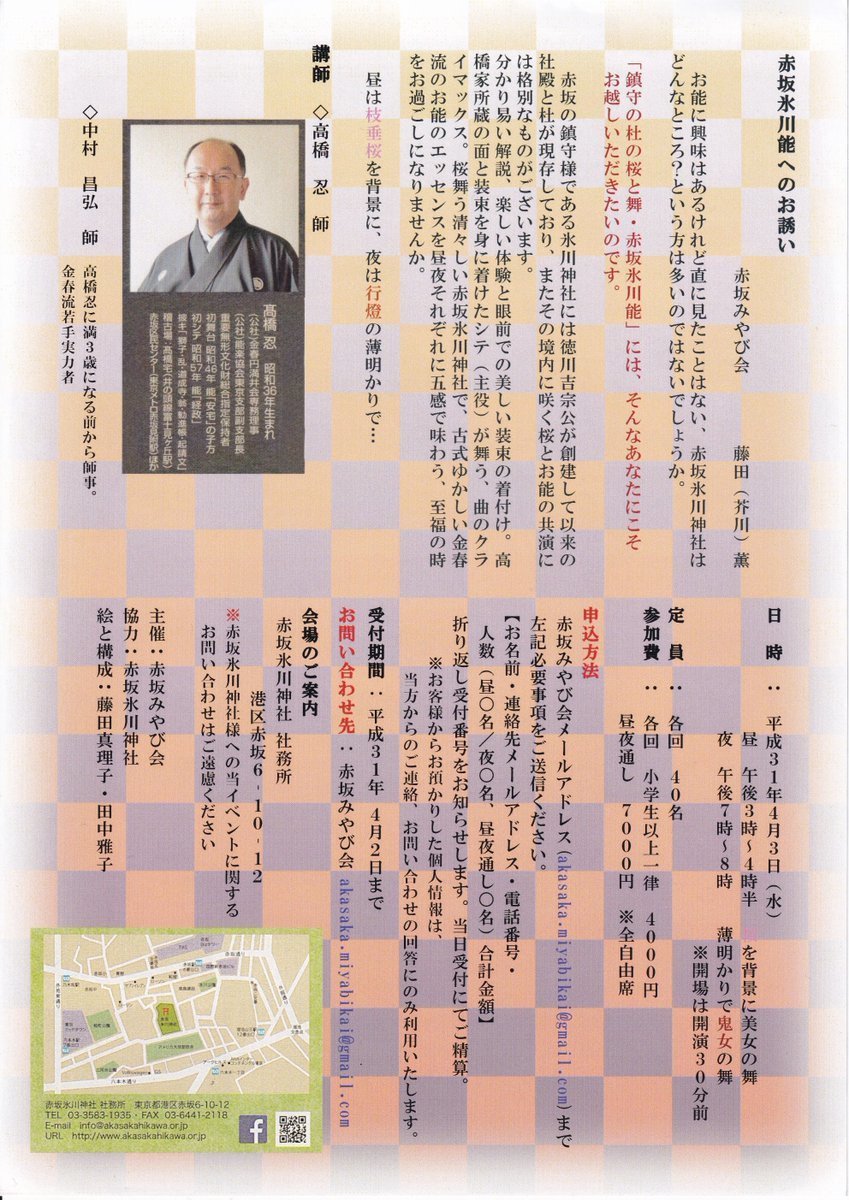 赤坂氷川能へのお誘い
赤坂みやび会　藤田（芥川）薫
お能に興味はあるけれど直に見たことはない、赤坂氷川神社は
どんなところ？という方は多いのではないでしょうか。
「鎮守の杜の桜と舞・赤坂氷川能」には、そんなあなたにこそ
お越しいただきたいのです。
赤坂の鎮守様である氷川神社には徳川吉宗公が創建して以来の
社殿と杜が現存しており、またその境内に咲く桜とお能の共演に
は格別なものがございます。
分かり易い解説、楽しい体験と眼前での美しい装束の着付け。高
橋家所蔵の面と装束を身に着けたシテ（主役）が舞う、曲のクラ
イマックス。桜舞う清々しい赤坂氷川神社で、古式ゆかしい金春
流のお能のエッセンスを昼夜それぞれに五感で味わう、至福の時
をお過ごしになりませんか。
昼は枝垂桜を背景に、夜は行燈の薄明かりで…
講師　◇高橋　忍　師
髙橋　忍　昭和36年生まれ
（公社）金春円満井会専務理事
（公社）能楽協会東京支部副支部長
重要無形文化財総合指定保持者
初舞台　昭和46年　能「安宅」の子方
初シテ　昭和57年　能「経政」
披キ「獅子・乱・道成寺・翁・勧進帳・起請文」
稽古場：髙橋宅（井の頭線富士見ヶ丘駅）
赤坂区民センター（東京メトロ赤坂見附駅）ほか
◇中村　昌弘　師
高橋忍に満3歳になる前から師事。
金春流若手実力者
日　時：平成31年4月3日（水）
昼　午後3時～4時半　を背景に美女の舞
夜　午後7時～8時　薄明かりで鬼女の舞
※開場は開演30分前
定　員：各回　40名
参加費：各回　小学生以上一律　4000円
昼夜通し　7000円　※全自由席
申込方法
赤坂みやび会メールアドレス(akasaka.miyabikai@gmail.com)まで
左記必要事項をご送信ください。
【お名前・連絡先メールアドレス・電話番号・
人数（昼〇名／夜〇名、昼夜通し〇名）合計金額】
折り返し受付番号をお知らせします。当日受付にてご精算。
※お客様からお預かりした個人情報は、
当方からのご連絡、お問い合わせの回答にのみ利用いたします。
受付期間：平成31年 4月2日まで
お問い合わせ先：赤坂みやび会 akasaka.miyabikai@gmail.com
会場のご案内
赤坂氷川神社　社務所
港区赤坂6-10-12
※赤坂氷川神社様への当イベントに関する
お問い合わせはご遠慮ください
主催：赤坂みやび会
協力：赤坂氷川神社
絵と構成：藤田真理子・田中雅子
赤坂通り
六本木通り
赤坂氷川神社 社務所　東京都港区赤坂6-10-12
TEL 03-3583-1935・FAX 03-6441-2118
E-mail info@akasakahikawa.or.jp
URL http://www.akasakahikawa.or.jp